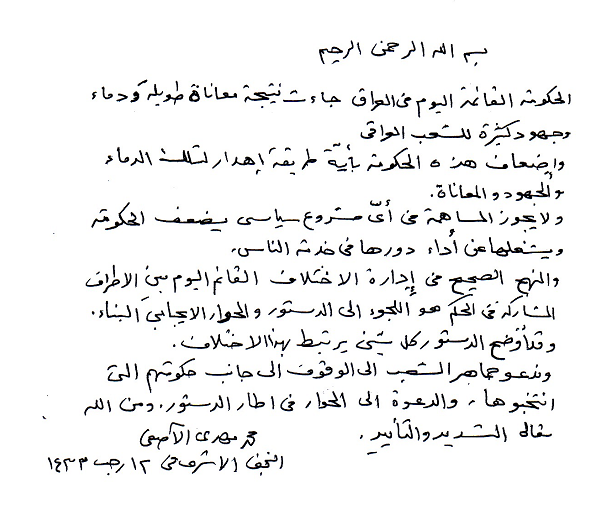 بسم الله الرحمن الرحيم
الحكومة القائمة اليوم في العراق جاءت نتيجة معاناة طويلة ودماء
وجهود كثيرة للشعب العراقي
وإضعاف هذه الحكومة بأيّة طريقة إهدار لتلك الدماء
والجهود والمعاناة.
ولا يجوز المساهمة في أيّ مشروع سياسي يضعف الحكومة
ويشغلها عن أداء دورها في خدمة الناس.
والنهج الصحيح في إدارة الاختلاف القائم اليوم بين الاطراف
المشاركة في الحكم هو اللجوء الى الدستور والحوار الايجابي البناء.
وقد أوضح الدستور كل شيء يرتبط بهذا الاختلاف.
وندعو جماهير الشعب الى الوقوف الى جانب حكومتهم التي
انتخبوها، والدعوة الى الحوار في اطار الدستور. ومن الله
تعالى التسديد والتأييد.
محمد مهدي الآصفي
النجف الاشرف في ١٢ رجب ١٤٣٣